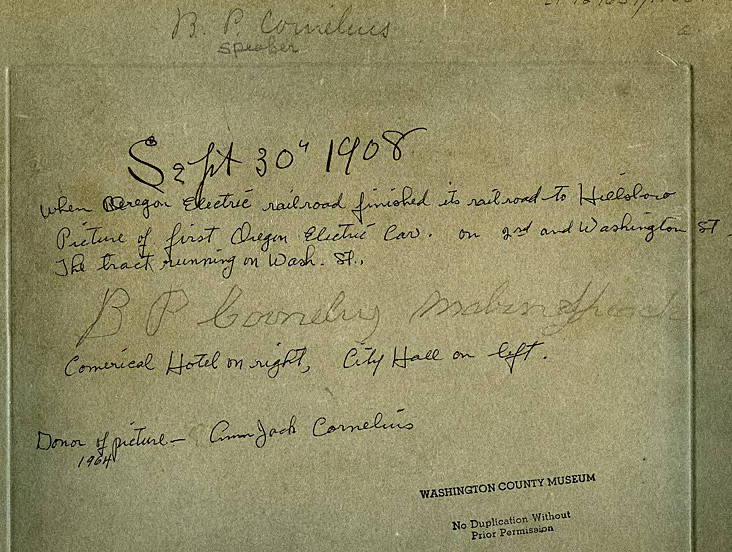 B. P Cornelius
speaker
Sept 30" 1908
When Oregon Electric railroad finished its railroad to Hillsboro
Picture of first Oregon Electric Car. on 2nd and Washington St.
The tract running on Wash. St.,
B P Cornelius Making Speach
Comerical Hotel on right, City Hall on left.
Donor of picture — Jack Cornelius
1964
WASHINGTON COUNTY MUSEUM
No Duplication Without
Prior Permission